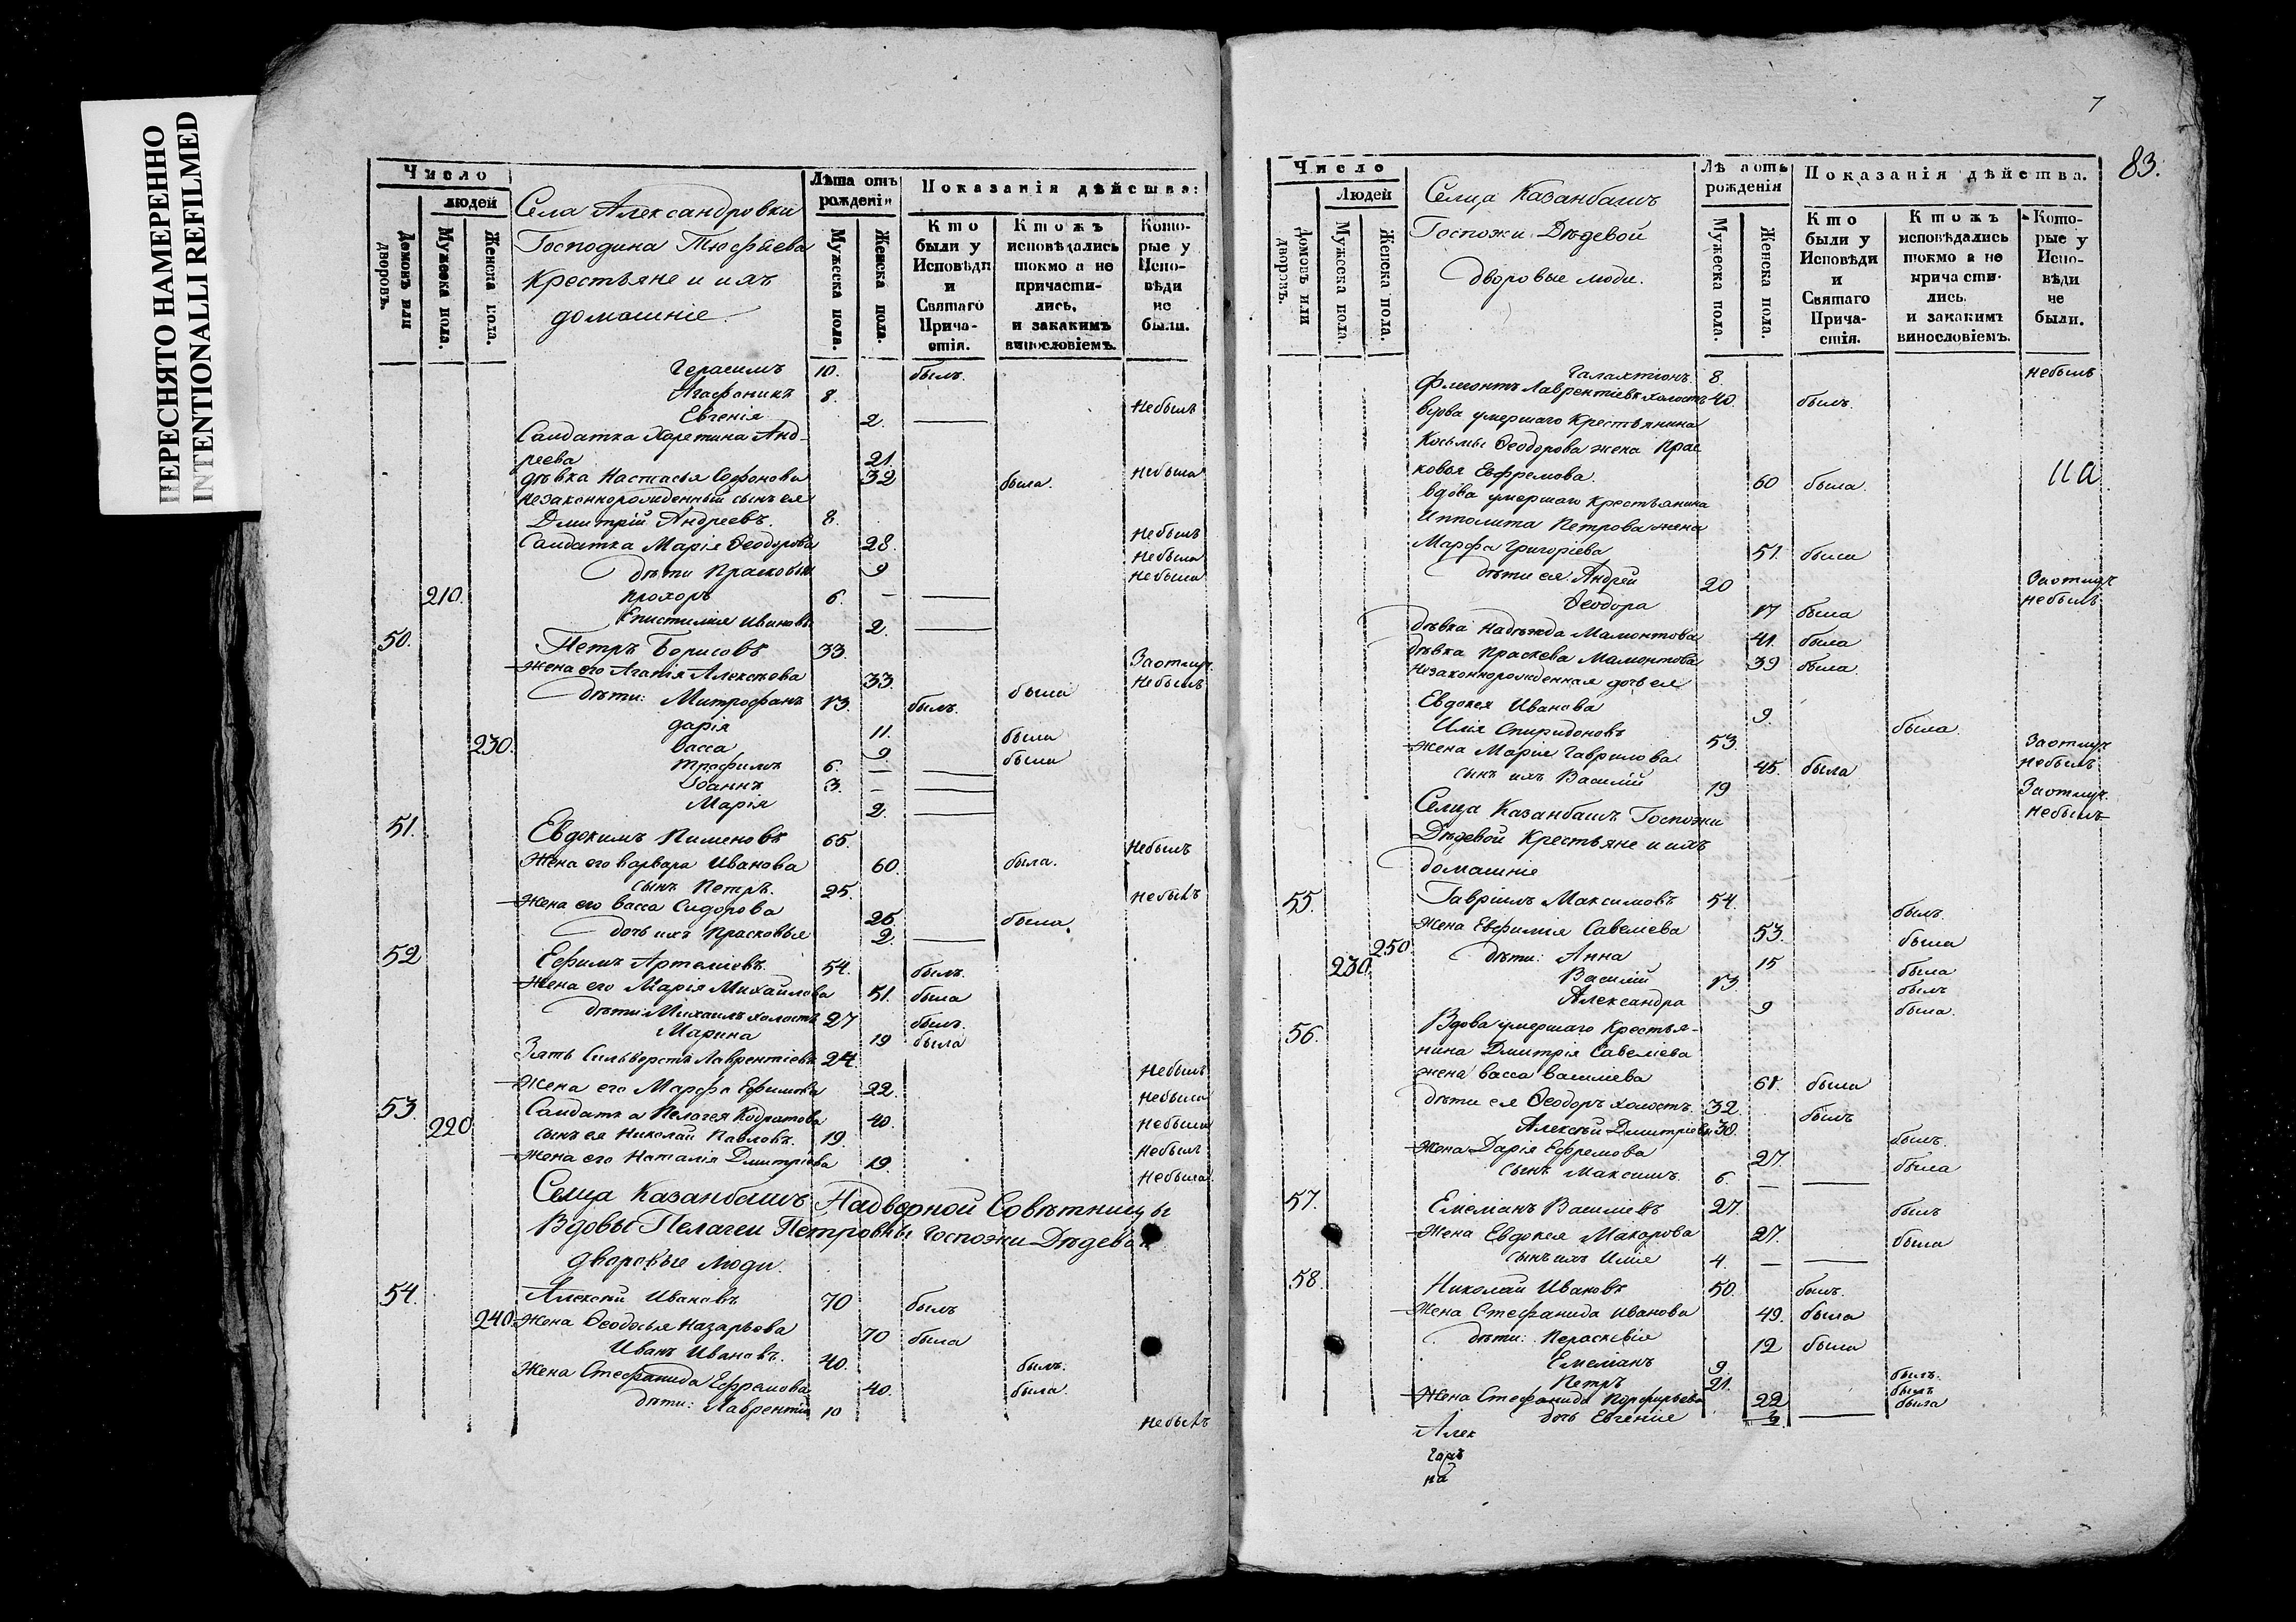 ПЕРЕСНЯТО НАМЕРЕННО
INTENTIONALLI REFILMED
Число
людей
Домовъ или дворовъ.
Мужеска пола.
Женска пола.
Села Александровки
Господина Тюфяева
Крестьяне и ихъ
домашніе
Лѣта отъ рожденія
Мужеска пола.
Женска пола.
Показанія дѣйства:
Кто были у Исповѣди и Святаго Прича-стія.
Ктожъ исповѣдались токмо а не причасти-лись, и закакимъ винословіемъ.
Кото-рые у Испо-вѣди не были.
Герасимъ 10. былъ.
Агафоникъ 8. Небылъ
Евгенія 2.
Салдатка Харетина Анд-
реева 21. Небыла
дѣвка Настасья Софонова 32 была.
незаконнорожденный сынъ ея
Дмитрій Андреевъ. 8. Небылъ
Салдатка Марія Ѳеодорова 28. Небыла
дѣти Прасковья 9 Небыла
210. Прохоръ 6.
Епистимія Ивановы 2.
50. Петръ Борисовъ 33. Заотлуч. Небылъ
Жена его Агапія Алексѣева 33. была
дѣти: Митрофанъ 13. былъ.
дарія 11. была
230. васса 9 была
Трофимъ 6.
Іоаннъ 3.
Марія 2.
51. Евдокимъ Пименовъ 65. Небылъ
Жена его варвара Иванова 60. была.
сынъ Петръ. 25. Небылъ
Жена его васса Сидорова 26. была.
дочь ихъ Прасковья 2.
52 Ефимъ Артеміевъ. 54. былъ.
Жена его Марія Михайлова 51. была
дѣти Михаилъ холостъ 27 былъ.
Марина 19 была
Зять Сильверстъ Лаврентіевъ 24. Небылъ
Жена его Марфа Ефимова 22. Небыла
53. Салдатка Пелагея Кодратова 40. Небыла
220. сынъ ея Николай Павловъ. 19. Небылъ
Жена его Наталія Дмитріева 19. Небыла
Селца Казанбашъ Надворной Совѣтницы
Вдовы Пелагеи Петровны Госпожи Дѣдевой
дворовые люди.
54. Алексѣй Ивановъ 70 былъ
240. Жена Ѳеодосья Назарьева 70 была
Иванъ Ивановъ. 40. былъ.
Жена Стефанида Ефремова 40. была.
дѣти: Лаврентій 10 Небылъ
7
83.
Число
Людей
Домовъ или дворовъ.
Мужеска пола.
Женска пола.
Селца Казанбашъ
Госпожи Дѣдевой
дворовые люди.
Лѣ а отъ рожденія
Мужеска пола.
Женска пола.
Показанія дѣйства.
Кто были у Исповѣди и Святаго Прича-стія.
Ктожъ исповѣдались токмо а не прича сти-лись. и закакимъ винословіемъ.
Кото-рые у Испо-вѣди не были.
Галахтіонъ. 8. Небылъ
Флегонтъ Лаврентіевъ холостъ 40. былъ.
вдова умершаго Крестьянина
Косьмы Ѳеодорова жена Прас
ковья Евфремова. 60 была.
вдова умершаго Крестьянина
Ипполита Петрова жена
Марфа Григоріева 51. была
дѣти ея Андрей 20 Заотлуч небылъ
Ѳеодора 17 была
дѣвка Надѣжда Мамонтова 41. была
дѣвка Праскева Мамонтова 39 была.
Незаконнорожденная дочь ея
Евдокея Иванова 9. была.
Илія Спиридоновъ 53. Заотлуч небылъ
Жена Марія Гаврилова 45. была
сынъ ихъ Василій 19 Заотлуч. небылъ
Селца Казанбашъ Госпожи
Дѣдевой Крестьяне и ихъ
домашніе
55. Гавріилъ Максимовъ 54. былъ.
Жена Евфимія Савеліева 53. была
250 дѣти: Анна 15 была
230. Василій 13. былъ
Александра 9 была.
56. Вдова умершаго Крестья-
нина Дмитрія Савеліева
жена васса василіева 61. была
дѣти ея Ѳеодоръ холостъ. 32. былъ
Алексѣй Дмитріевы 30. былъ.
Жена Дарія Ефремова 27. была
сынъ Максимъ. 6.
57. Емеліанъ Василіевъ 27. былъ
Жена Евдокея Макарова 27. была
сынъ ихъ Илія 4.
58. Николай Ивановъ 50. былъ.
Жена Стефанида Иванова 49. была
дѣти: Пераскевія 12 была
Емеліанъ 9 былъ.
Петръ 21. былъ
Жена Стефанида Порфирьева 22 была
дочь Евгенія
Алек